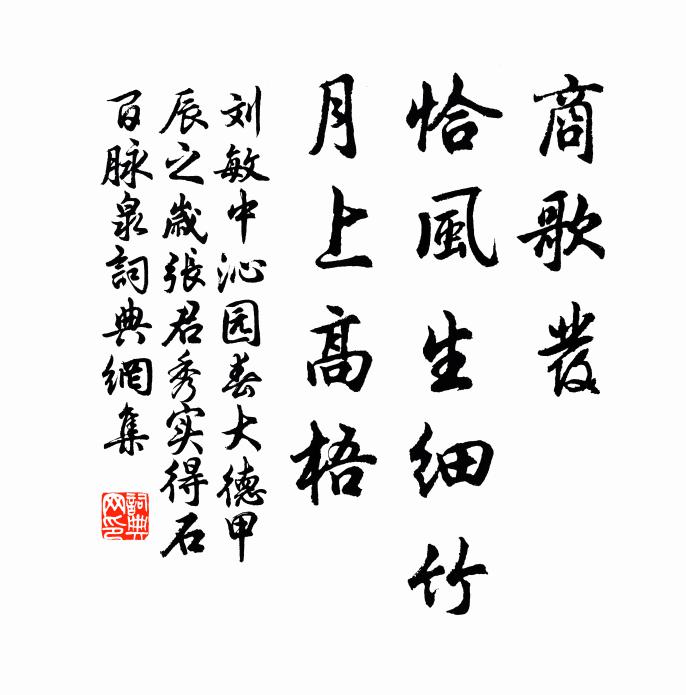 商歌發
恰風生細竹
月上高梧
刘敏中沁园春大德甲
辰之歲張君秀实得石
百脉泉詞典網集
詞典网印